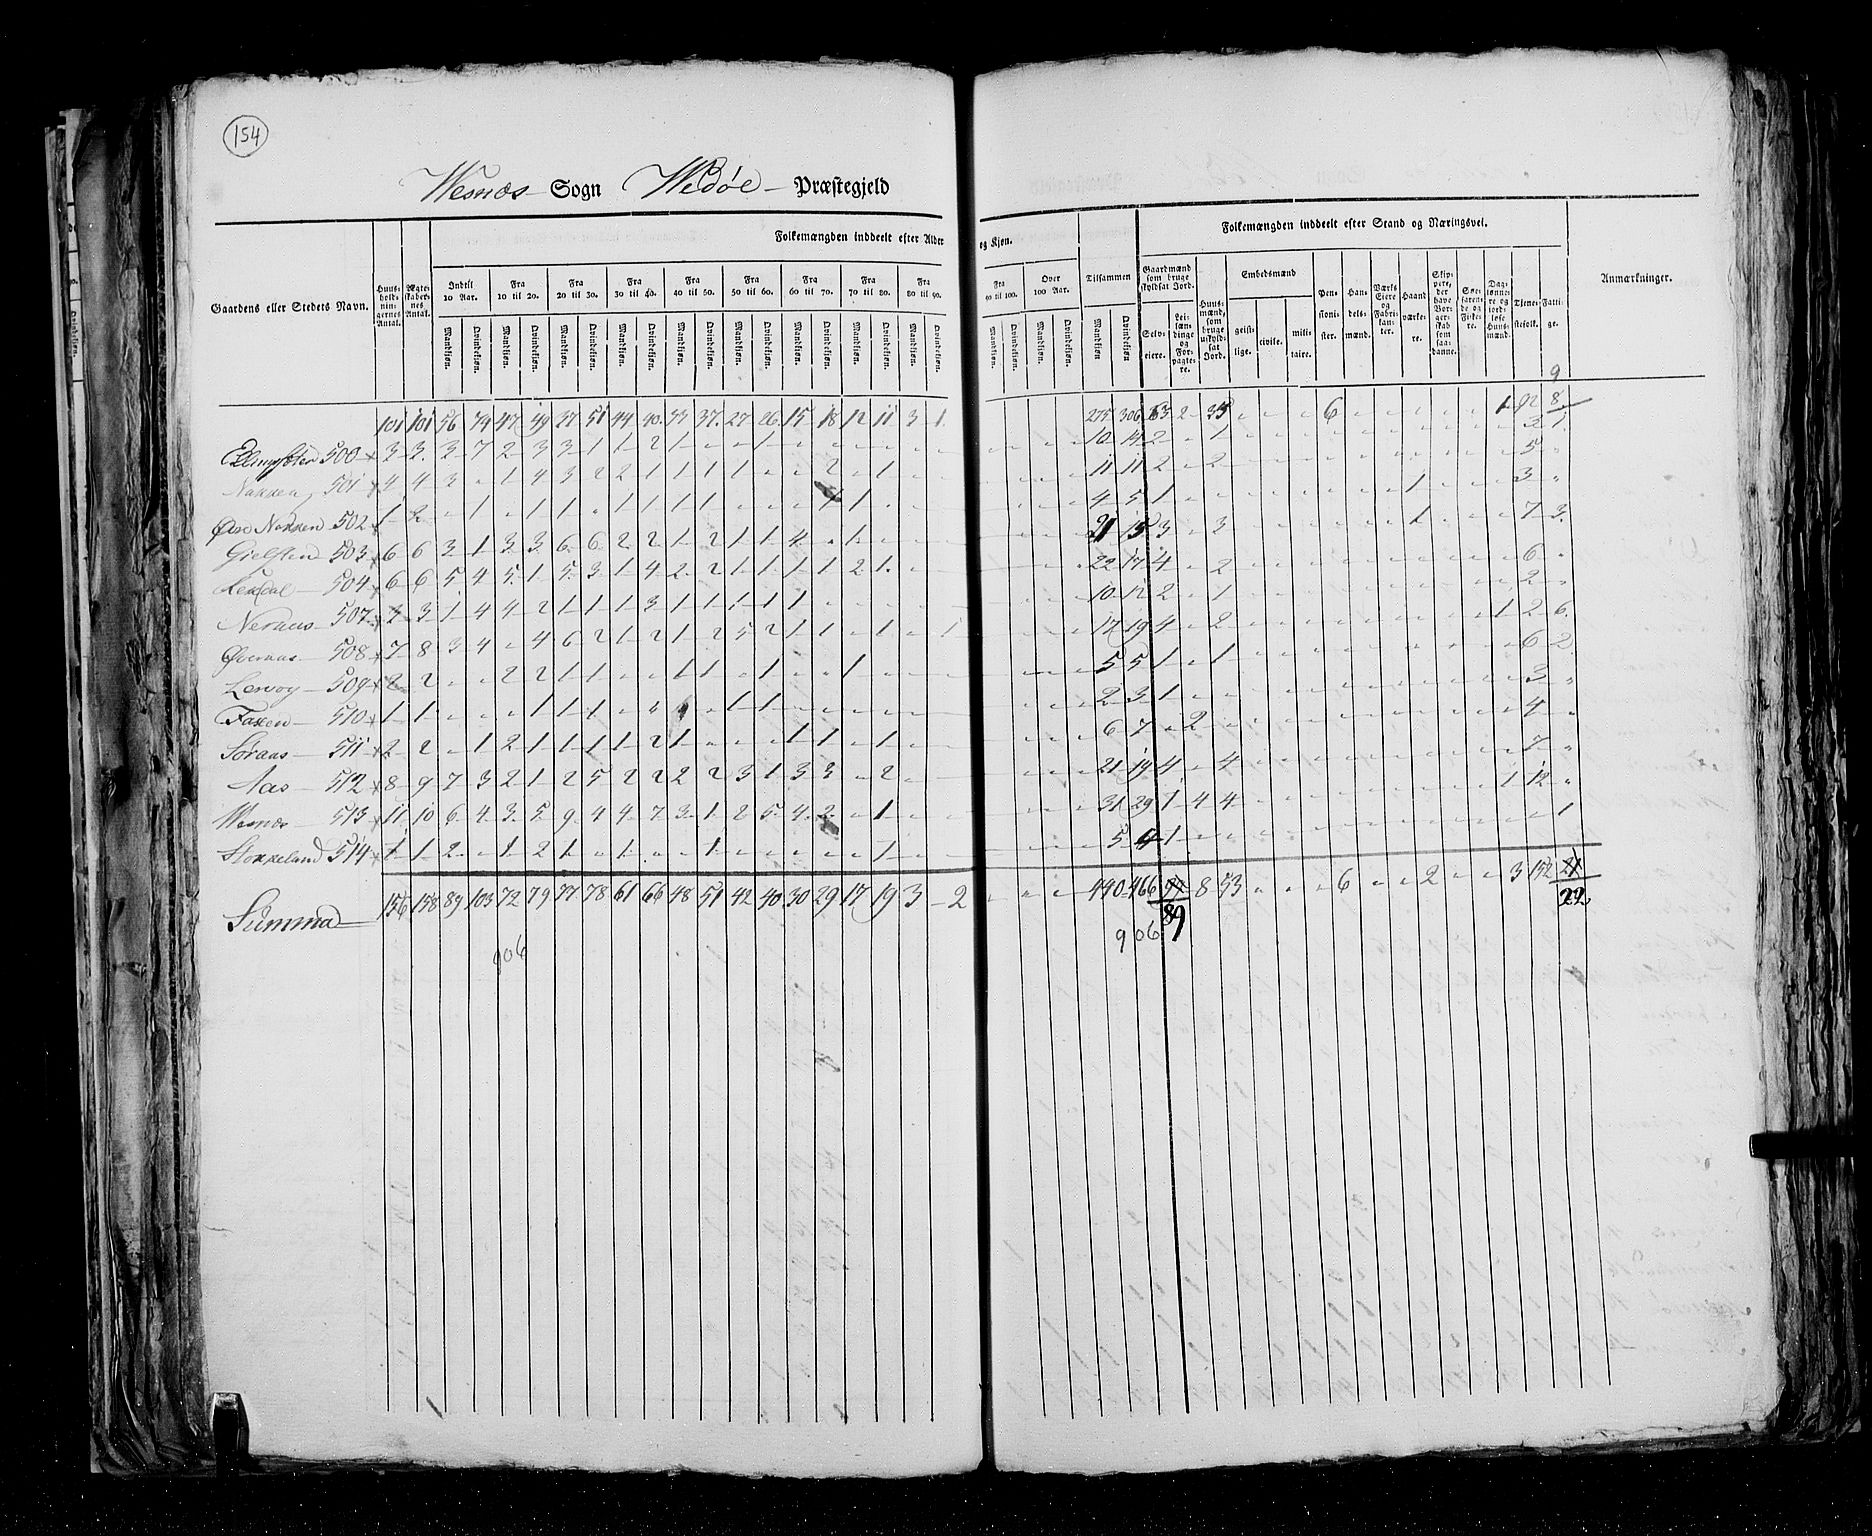 154
Wesnæs Sogn Wedøe Præstegjeld
Gaardens eller Stedets Navn.
Huus-holdnin-gernes Antal.
Ægte-skaber-nes Antal.
Folkemængden inddeelt efter Alder og Kjøn.
Indtil 10 Aar. Fra 10 til 20. Fra 20 til 30. Fra 30 til 40. Fra 40 til 50. Fra 50 til 60. Fra 60 til 70. Fra 70 til 80. Fra 80 til 90. Fra 90 til 100. Over 100 Aar. Tilsammen
Mandkjøn. Qvindekjøn.
Folkemængden inddeelt efter Stand og Næringsvei.
Gaardmænd som bruge skyldsat Jord.
Selv-eiere.
Lei-læn-dinge og For-pagte-re.
Huus-mænd, som bruge uskyld-sat Jord.
Embedsmænd
geist-lige. civile. mili-taire.
Pen-sioni-ster.
Han-dels-mænd.
Værks Eiere og Fabri-kan-ter.
Haand værke-re.
Skip-pere, der have Bor-ger-skab som saa-danne.
Søe-farende og Fiske-re.
Dag-lønne-re og jord-løse Huus-mænd.
Tjene-stefolk.
Fatti-ge.
Anmærkninger.
9
101 101 56 79 47 49 37 51 44 40 33 37 27 26 15 18 12 11 3 1 275 306 63 2 35 6 1 92 8
500 3 3 3 7 2 3 3 1 1 2 1 1 10 14 2 1 3 1
Nakken 501 4 4 3 1 4 3 2 2 1 1 1 1 2 1 11 11 2 2 5
Nakken 502 1 2 1 1 1 1 1 1 1 4 5 1 1 3
Gjelsten 503 6 6 3 1 3 3 6 6 2 2 1 2 1 1 4 1 21 15 3 3 1 7 3
504 6 6 5 4 5 1 5 3 1 4 2 2 1 1 1 1 2 1 22 17 4 2 6
Neraas 507 3 3 1 4 4 2 1 1 1 3 1 1 1 1 1 10 12 2 1 2
Øveraas 508 7 8 3 4 4 6 2 1 2 1 2 5 2 1 1 1 1 17 19 4 2 1 2 6
509 2 2 2 2 1 1 1 1 1 5 5 1 1 6 2
510 1 1 1 1 1 1 1 2 3 1 3
Søraas 511 2 2 1 2 1 1 1 1 2 1 1 1 1 6 7 2 4
Aas 512 8 9 7 3 2 1 2 5 2 2 2 2 3 1 3 3 2 21 19 4 4 7
Wesnæs 513 11 10 6 4 3 5 9 4 4 7 3 1 2 5 4 2 1 31 29 1 4 4 1 12
Stokkeland 514 1 1 2 1 2 1 1 1 1 5 4 1 1
Summa 156 158 89 103 72 79 77 78 61 66 48 51 42 40 30 29 17 19 3 2 440 466 8 53 6 2 3 152 21
89
22
906
906